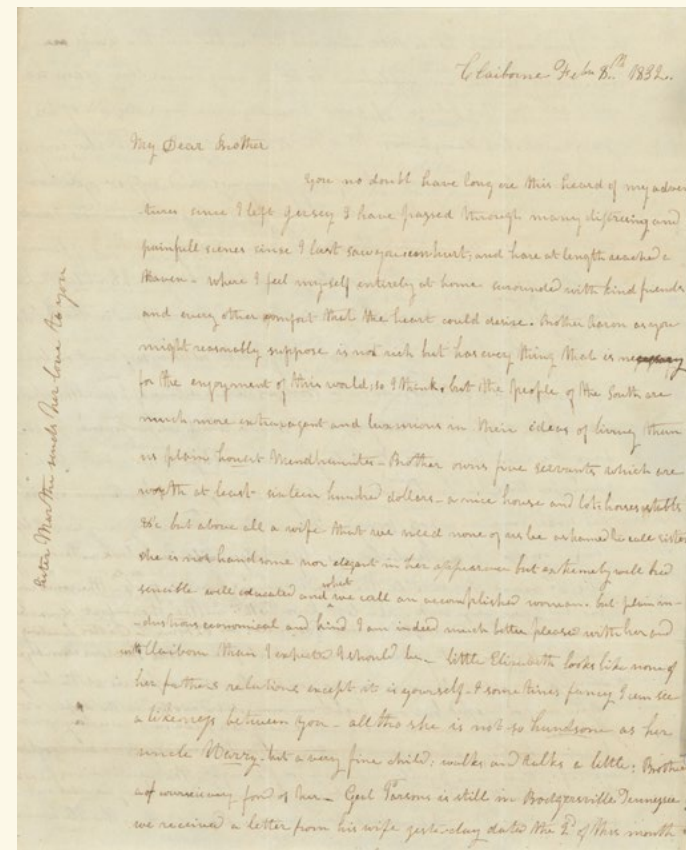 Claiborne Feby 8th 1832.
My Dear Brother
You no doubt have long ere this heard of my adven
-tures since I left Jersey I have passed through many distressing and
painfull scenes since I last saw you and have at length reached a
Haven - where I feel myself entirely at home surounded with kind friends
and every other comfort that the heart could desire. Brother Aaron as you
might reasonably suppose is not rich but has every thing that is necessary
for the enjoyment of this world, so I think, but the people of the South are
much more extravagent and luxurious in their ideas of living than
us plain honest Mendhamites - Brother owns five servants which are
worth at least sixteen hundred dollars - a nice house and lot, horses, stable
&c but above all a wife that we need none of us be ashamed to call sister
she is not handsome nor elegant in her appearance but extremely well bred
sensible well educated and what we call an accomplished woman. but plain in-
-dustrious economical and kind I am indeed much better pleased with her and
with Claiborn than I expected I should be - little Elizabeth looks like none of
her fathers relations except it is yourself - I some times fancy I can see
a likeness between you - all tho she is not so handsome as her
uncle - but a very fine child; walks and talks a little; Brother
is of course very fond of her - Parsons is still in Tennessee
we received a letter from his wife yesterday dated the 2d of this month
sister Martha sends her love to you